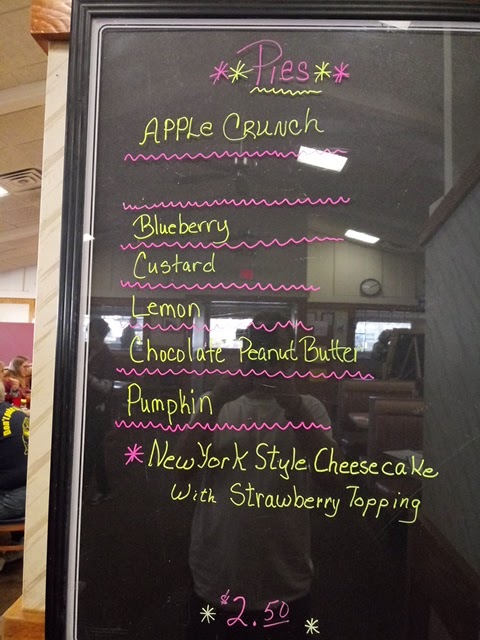 **Pies**
APPLE CRUNCH
Blueberry
Custard
Lemon
Chocolate Peanut Butter
Pumpkin
*New York Style Cheesecake
With Strawberry Topping
* $2.50 *